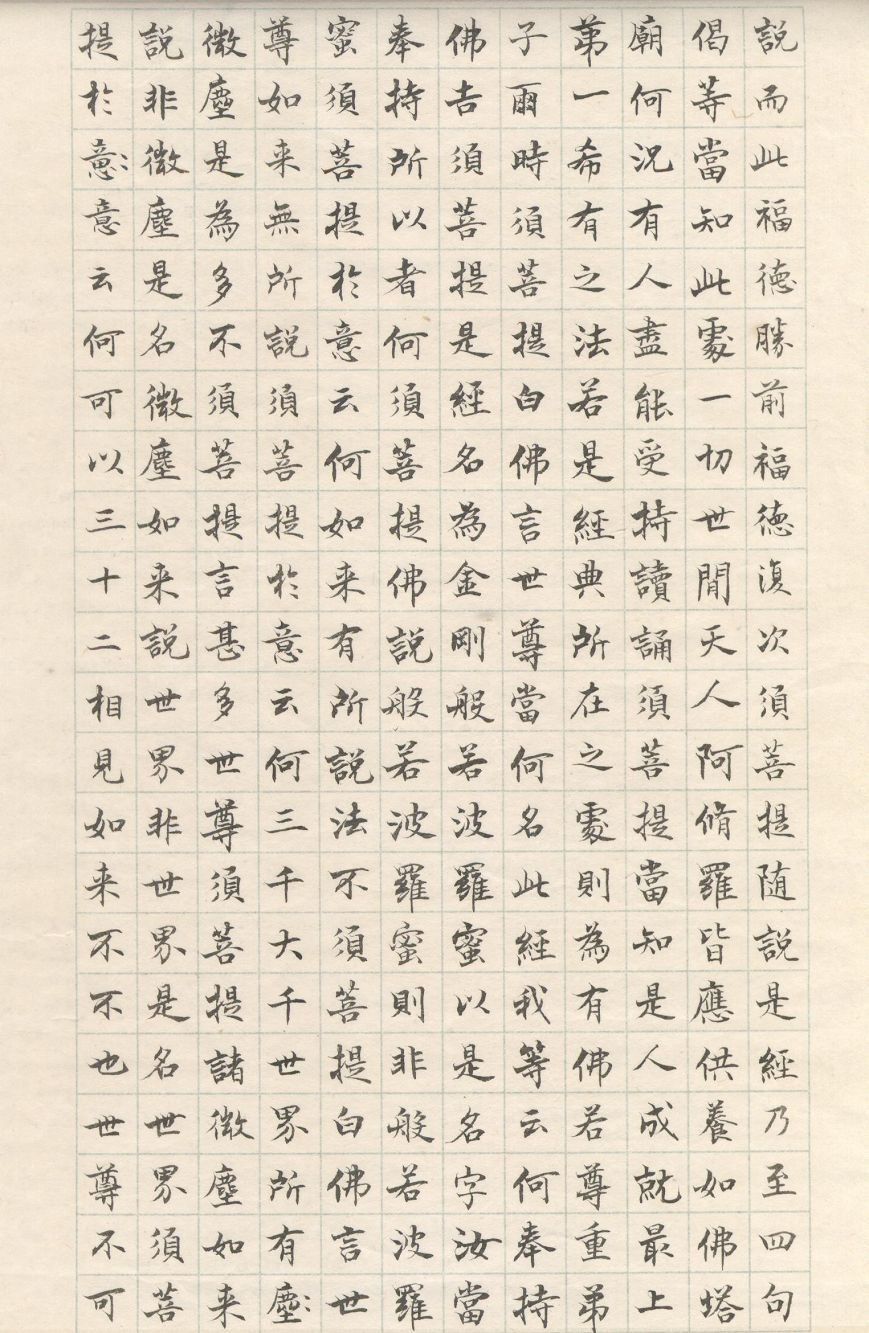 說而此福德勝前福德復次須菩提随說是經乃至四句
偈等當知此處一切世間天人阿脩羅皆應供養如佛塔
廟何況有人盡能受持讀誦須菩提當知是人成就最上
第一希有之法若是經典所在之處則為有佛若尊重弟
子爾時須菩提白佛言世尊當何名此經我等云何奉持
佛告須菩提是經名為金剛般若波羅蜜以是名字汝當
奉持所以者何須菩提佛說般若波羅蜜則非般若波羅
蜜須菩提於意云何如来有所說法不須菩提白佛言世
尊如来無所說須菩提於意云何三千大千世界所有塵
微塵是為多不須菩提言甚多世尊須菩提諸微塵如来
說非微塵是名微塵如来說世界非世界是名世界須菩
提於意意云何可以三十二相見如来不不也世尊不可